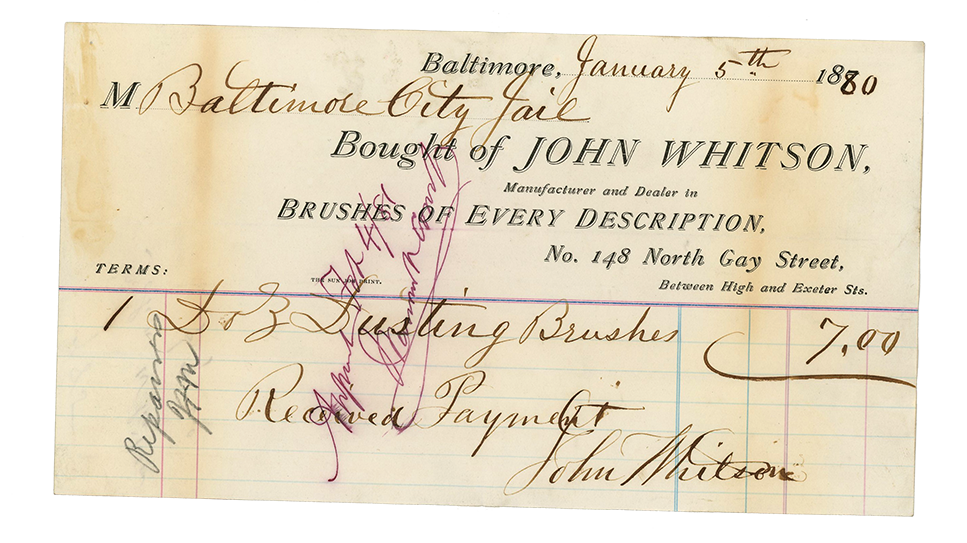 Baltimore, January 5th 1880
M Baltimore City Jail
Bought of JOHN WHITSON,
Manufacturer and Dealer in
BRUSHES OF EVERY DESCRIPTION,
No. 148 North Gay Street,
Between High and Exeter Sts.
TERMS:
THE SUN PRINT.
1 Doz Dusting Brushes 7.00
Received Payment
John Whitson